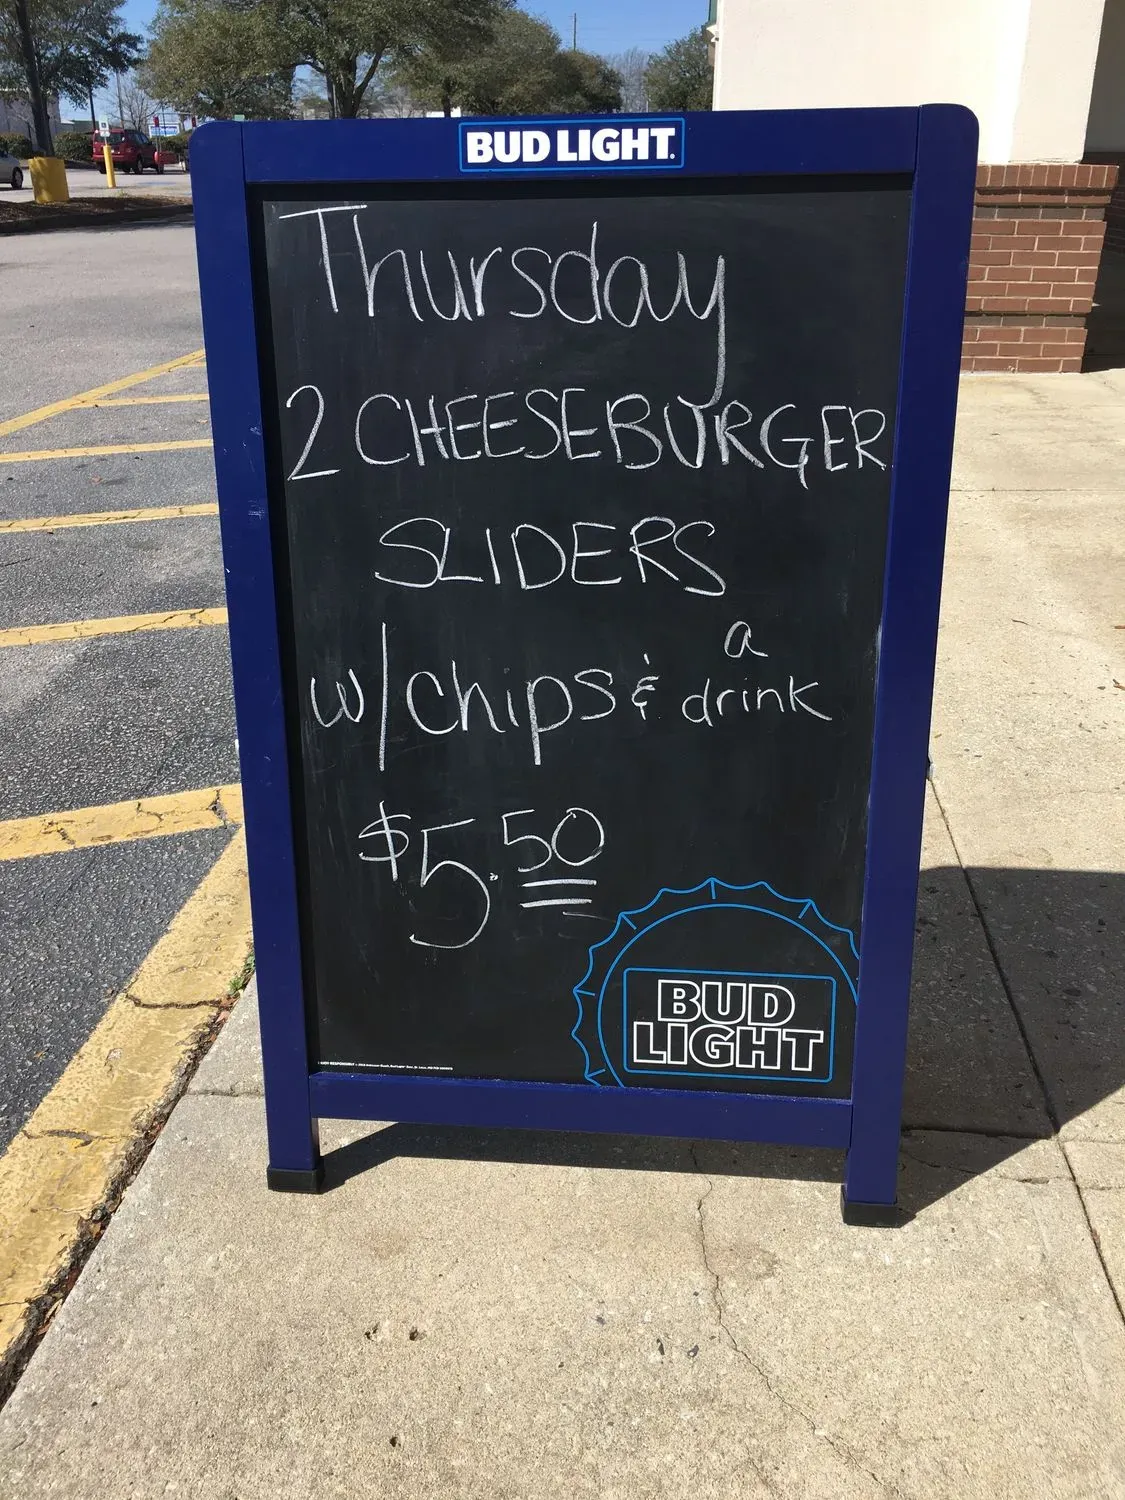 BUD LIGHT.
Thursday
2 CHEESEBURGER
SLIDERS
w/ chips & a drink
$5.50
BUD
LIGHT